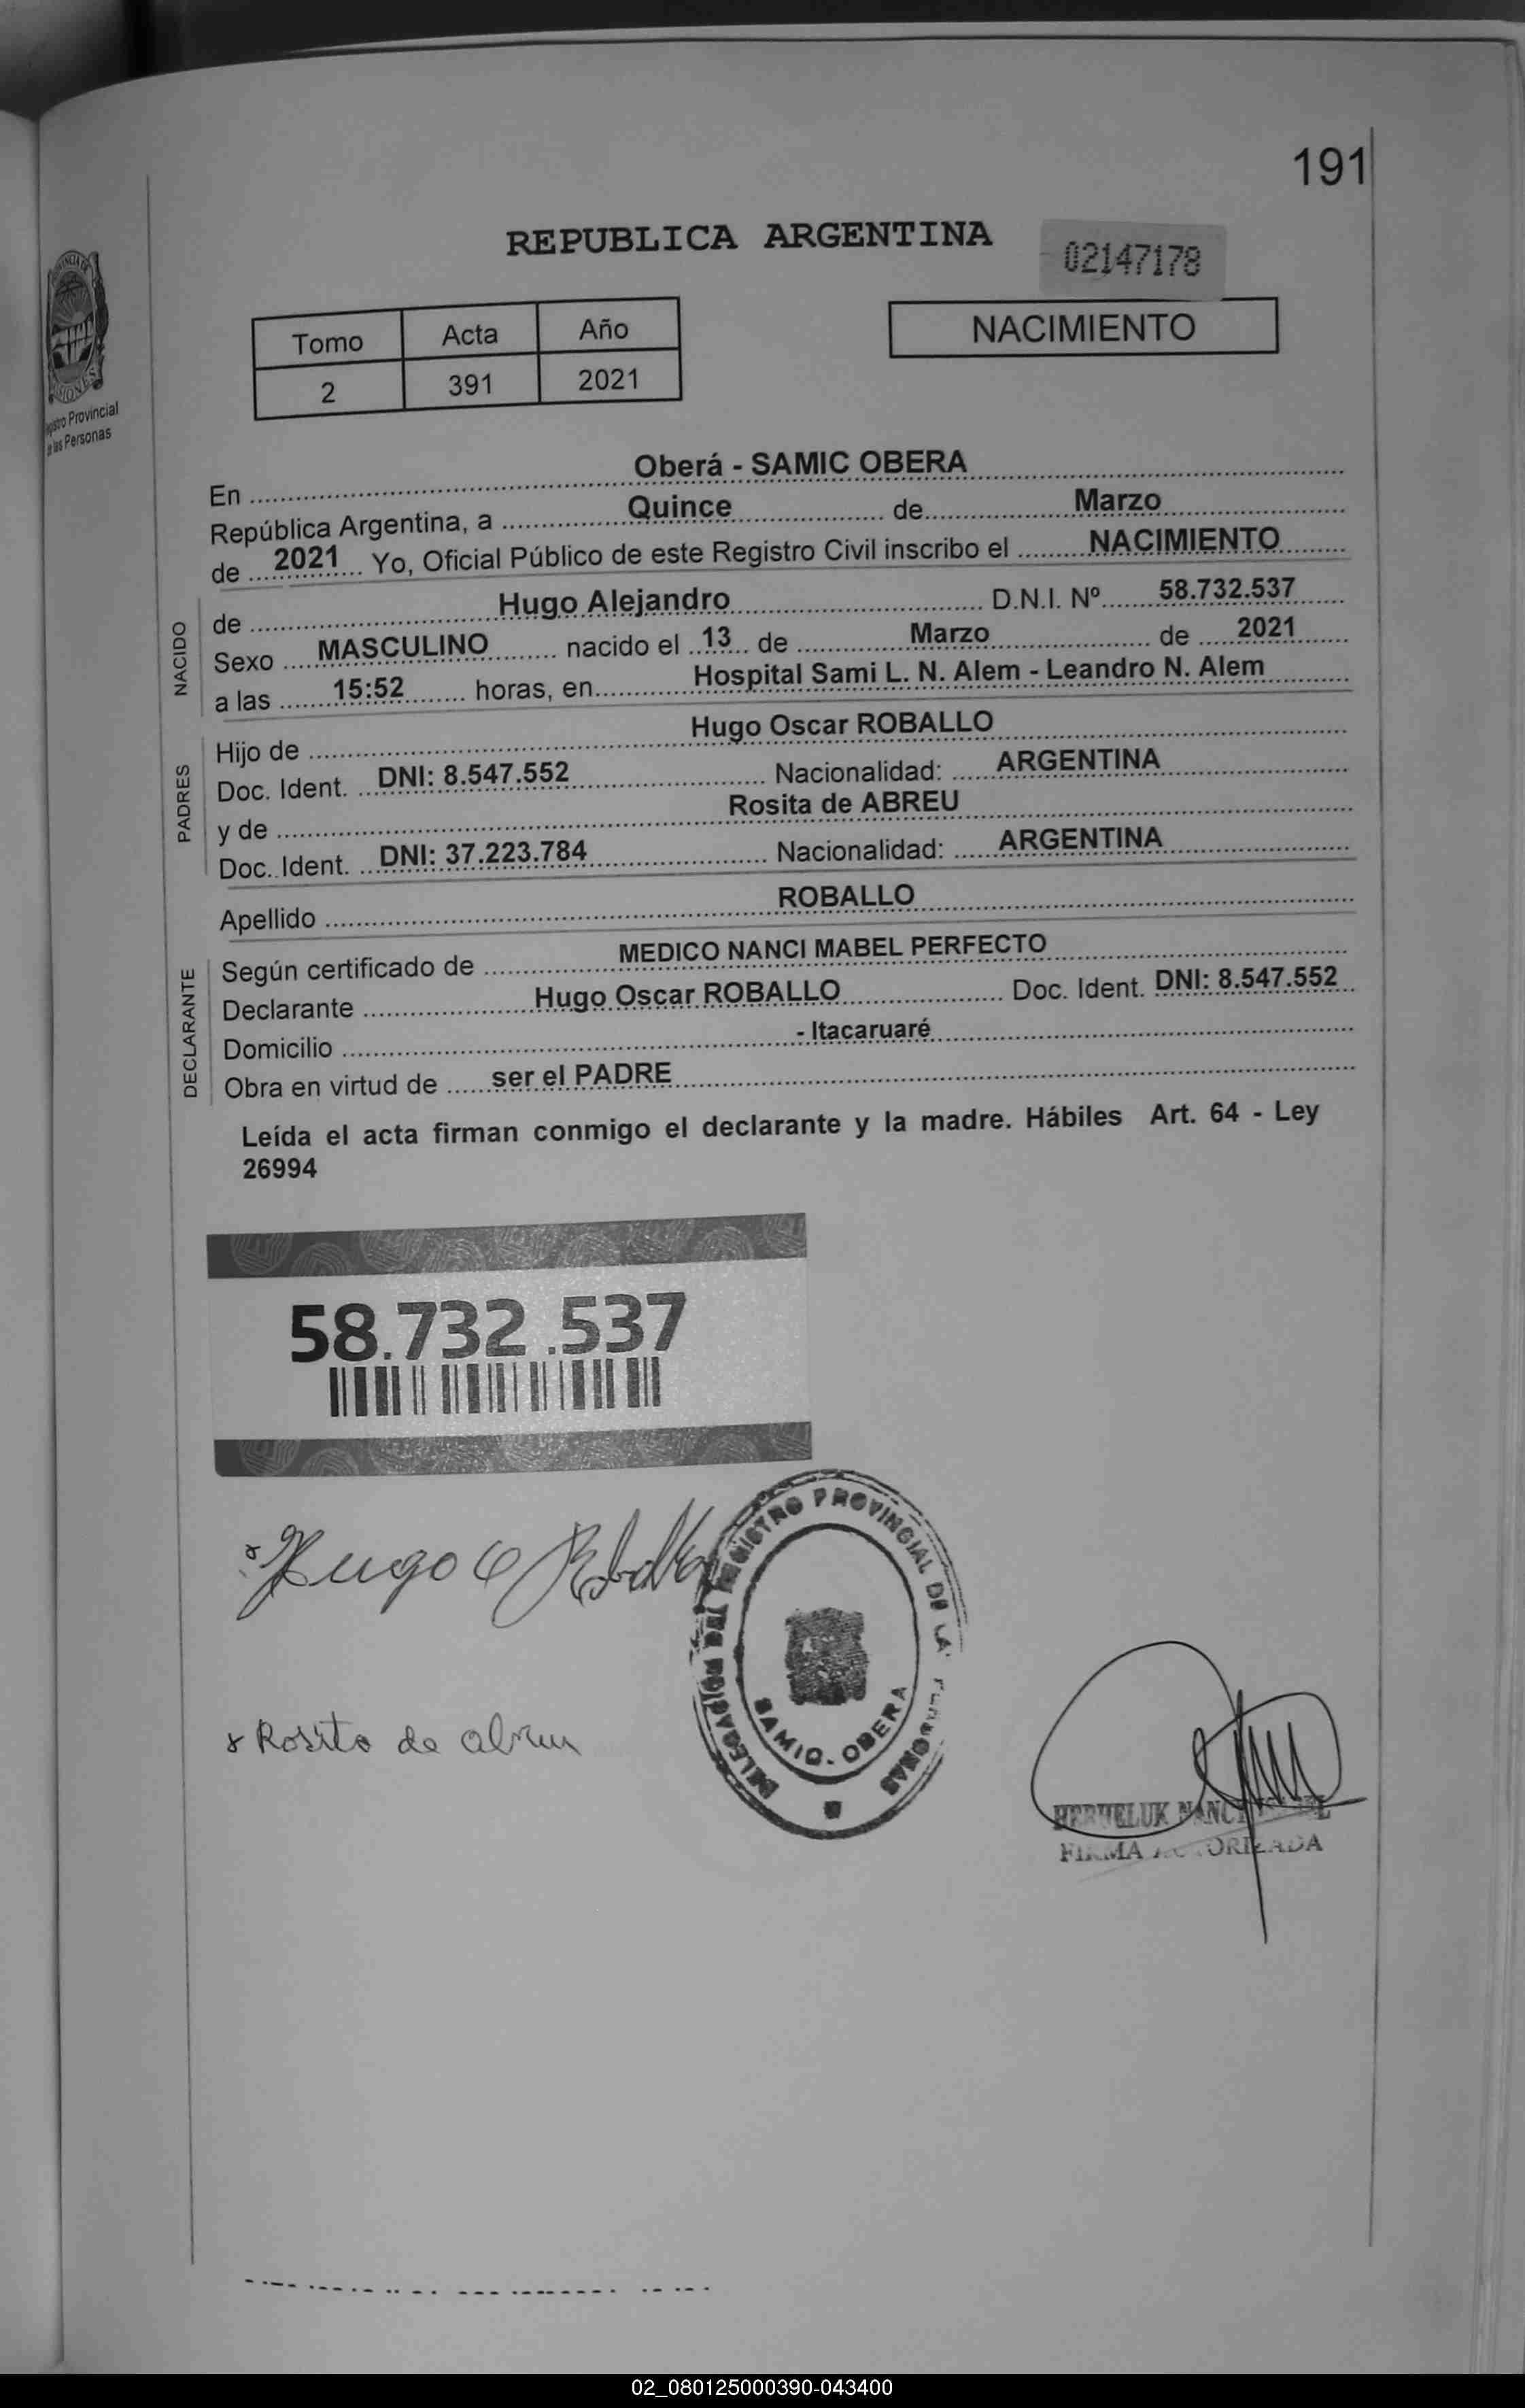 191
REPUBLICA ARGENTINA
02147178
Tomo Acta Año
2 391 2021
NACIMIENTO
PROVINCIA DE
MISIONES
Registro Provincial
de las Personas
En Oberá - SAMIC OBERA
República Argentina, a Quince de Marzo
de 2021 Yo, Oficial Público de este Registro Civil inscribo el NACIMIENTO
NACIDO
de Hugo Alejandro D.N.I. Nº 58.732.537
Sexo MASCULINO nacido el 13 de Marzo de 2021
a las 15:52 horas, en Hospital Sami L. N. Alem - Leandro N. Alem
PADRES
Hijo de Hugo Oscar ROBALLO
Doc. Ident. DNI: 8.547.552 Nacionalidad: ARGENTINA
y de Rosita de ABREU
Doc. Ident. DNI: 37.223.784 Nacionalidad: ARGENTINA
Apellido ROBALLO
DECLARANTE
Según certificado de MEDICO NANCI MABEL PERFECTO
Declarante Hugo Oscar ROBALLO Doc. Ident. DNI: 8.547.552
Domicilio - Itacaruaré
Obra en virtud de ser el PADRE
Leída el acta firman conmigo el declarante y la madre. Hábiles Art. 64 - Ley
26994
58.732.537
Hugo O Roballo
DELEGACION DEL REGISTRO PROVINCIAL DE LAS PERSONAS
SAMIC. OBERA
x Rosita de abreu
NANCI
FIRMA AUTORIZADA
02_080125000390-043400